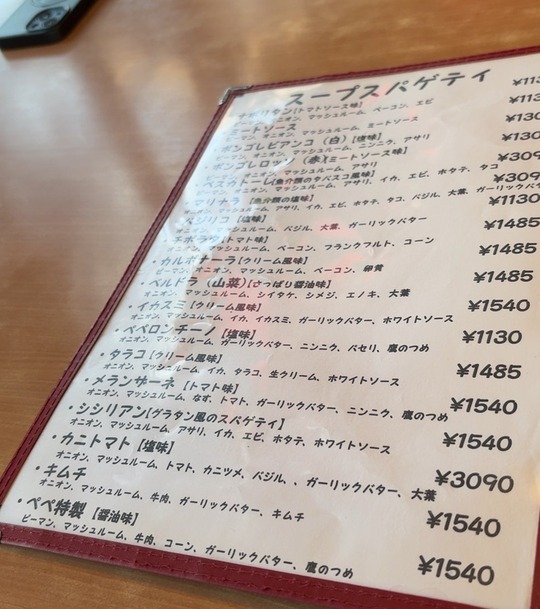 スープスパゲティ
ナポリタン[トマトソース味] ¥113
オニオン、マッシュルーム、ベーコン、エビ ¥113
ミートソース
オニオン、マッシュルーム、ミートソース ¥130
ボンゴレビアンコ (白) [塩味]
ピーマン、オニオン、マッシュルーム、ニンニク、アサリ ¥130
ボンゴレロッソ (赤)[ミートソース味]
オニオン、マッシュルーム、アサリ ¥309
ペスカトーレ[魚介類のタバスコ風味]
マッシュルーム、アサリ、イカ、エビ、ホタテ、タコ ¥309
・マリナラ [魚介類の塩味]
マッシュルーム、アサリ、イカ、エビ、ホタテ、タコ、バジル、大葉、ガーリックバ
・バジリコ [塩味] ¥1130
オニオン、マッシュルーム、バジル、大葉、ガーリックバター
[トマト味] ¥1485
オニオン、マッシュルーム、ベーコン、フランクフルト、コーン
・カルボナーラ[クリーム風味] ¥1485
ピーマン、オニオン、マッシュルーム、ベーコン、卵黄
・ベルドラ (山菜)[さっぱり醤油味] ¥1485
オニオン、マッシュルーム、シイタケ、シメジ、エノキ、大葉
・イカスミ [クリーム風味] ¥1540
オニオン、マッシュルーム、イカ、イカスミ、ガーリックバター、ホワイトソース
・ペペロンチーノ [塩味] ¥1130
オニオン、マッシュルーム、ガーリックバター、ニンニク、パセリ、鷹のつめ
・タラコ [クリーム風味] ¥1485
オニオン、マッシュルーム、イカ、タラコ、生クリーム、ホワイトソース
・メランザーネ [トマト味] ¥1540
オニオン、マッシュルーム、なす、トマト、ガーリックバター、ニンニク、鷹のつめ
・シシリアン[グラタン風のスパゲティ] ¥1540
オニオン、マッシュルーム、アサリ、イカ、エビ、ホタテ、ホワイトソース
・カニトマト [塩味] ¥3090
オニオン、マッシュルーム、トマト、カニツメ、バジル、、ガーリックバター、大葉
・キムチ ¥1540
オニオン、マッシュルーム、牛肉、ガーリックバター、キムチ
・ペペ特製 [醤油味] ¥1540
ピーマン、マッシュルーム、牛肉、コーン、ガーリックバター、鷹のつめ